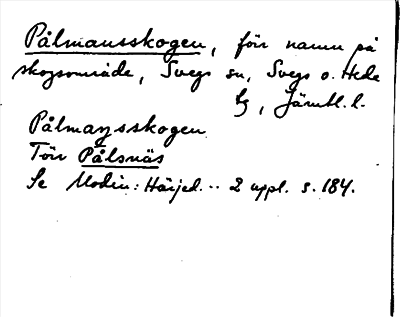 Pålmansskogen, förr namn på
skogsområde, Svegs sn, Svegs o. Hede
tg, Jämtl. l.
Pålmansskogen
Förr Pålsnäs
Se Modin: Härjed... 2 uppl. s. 184.